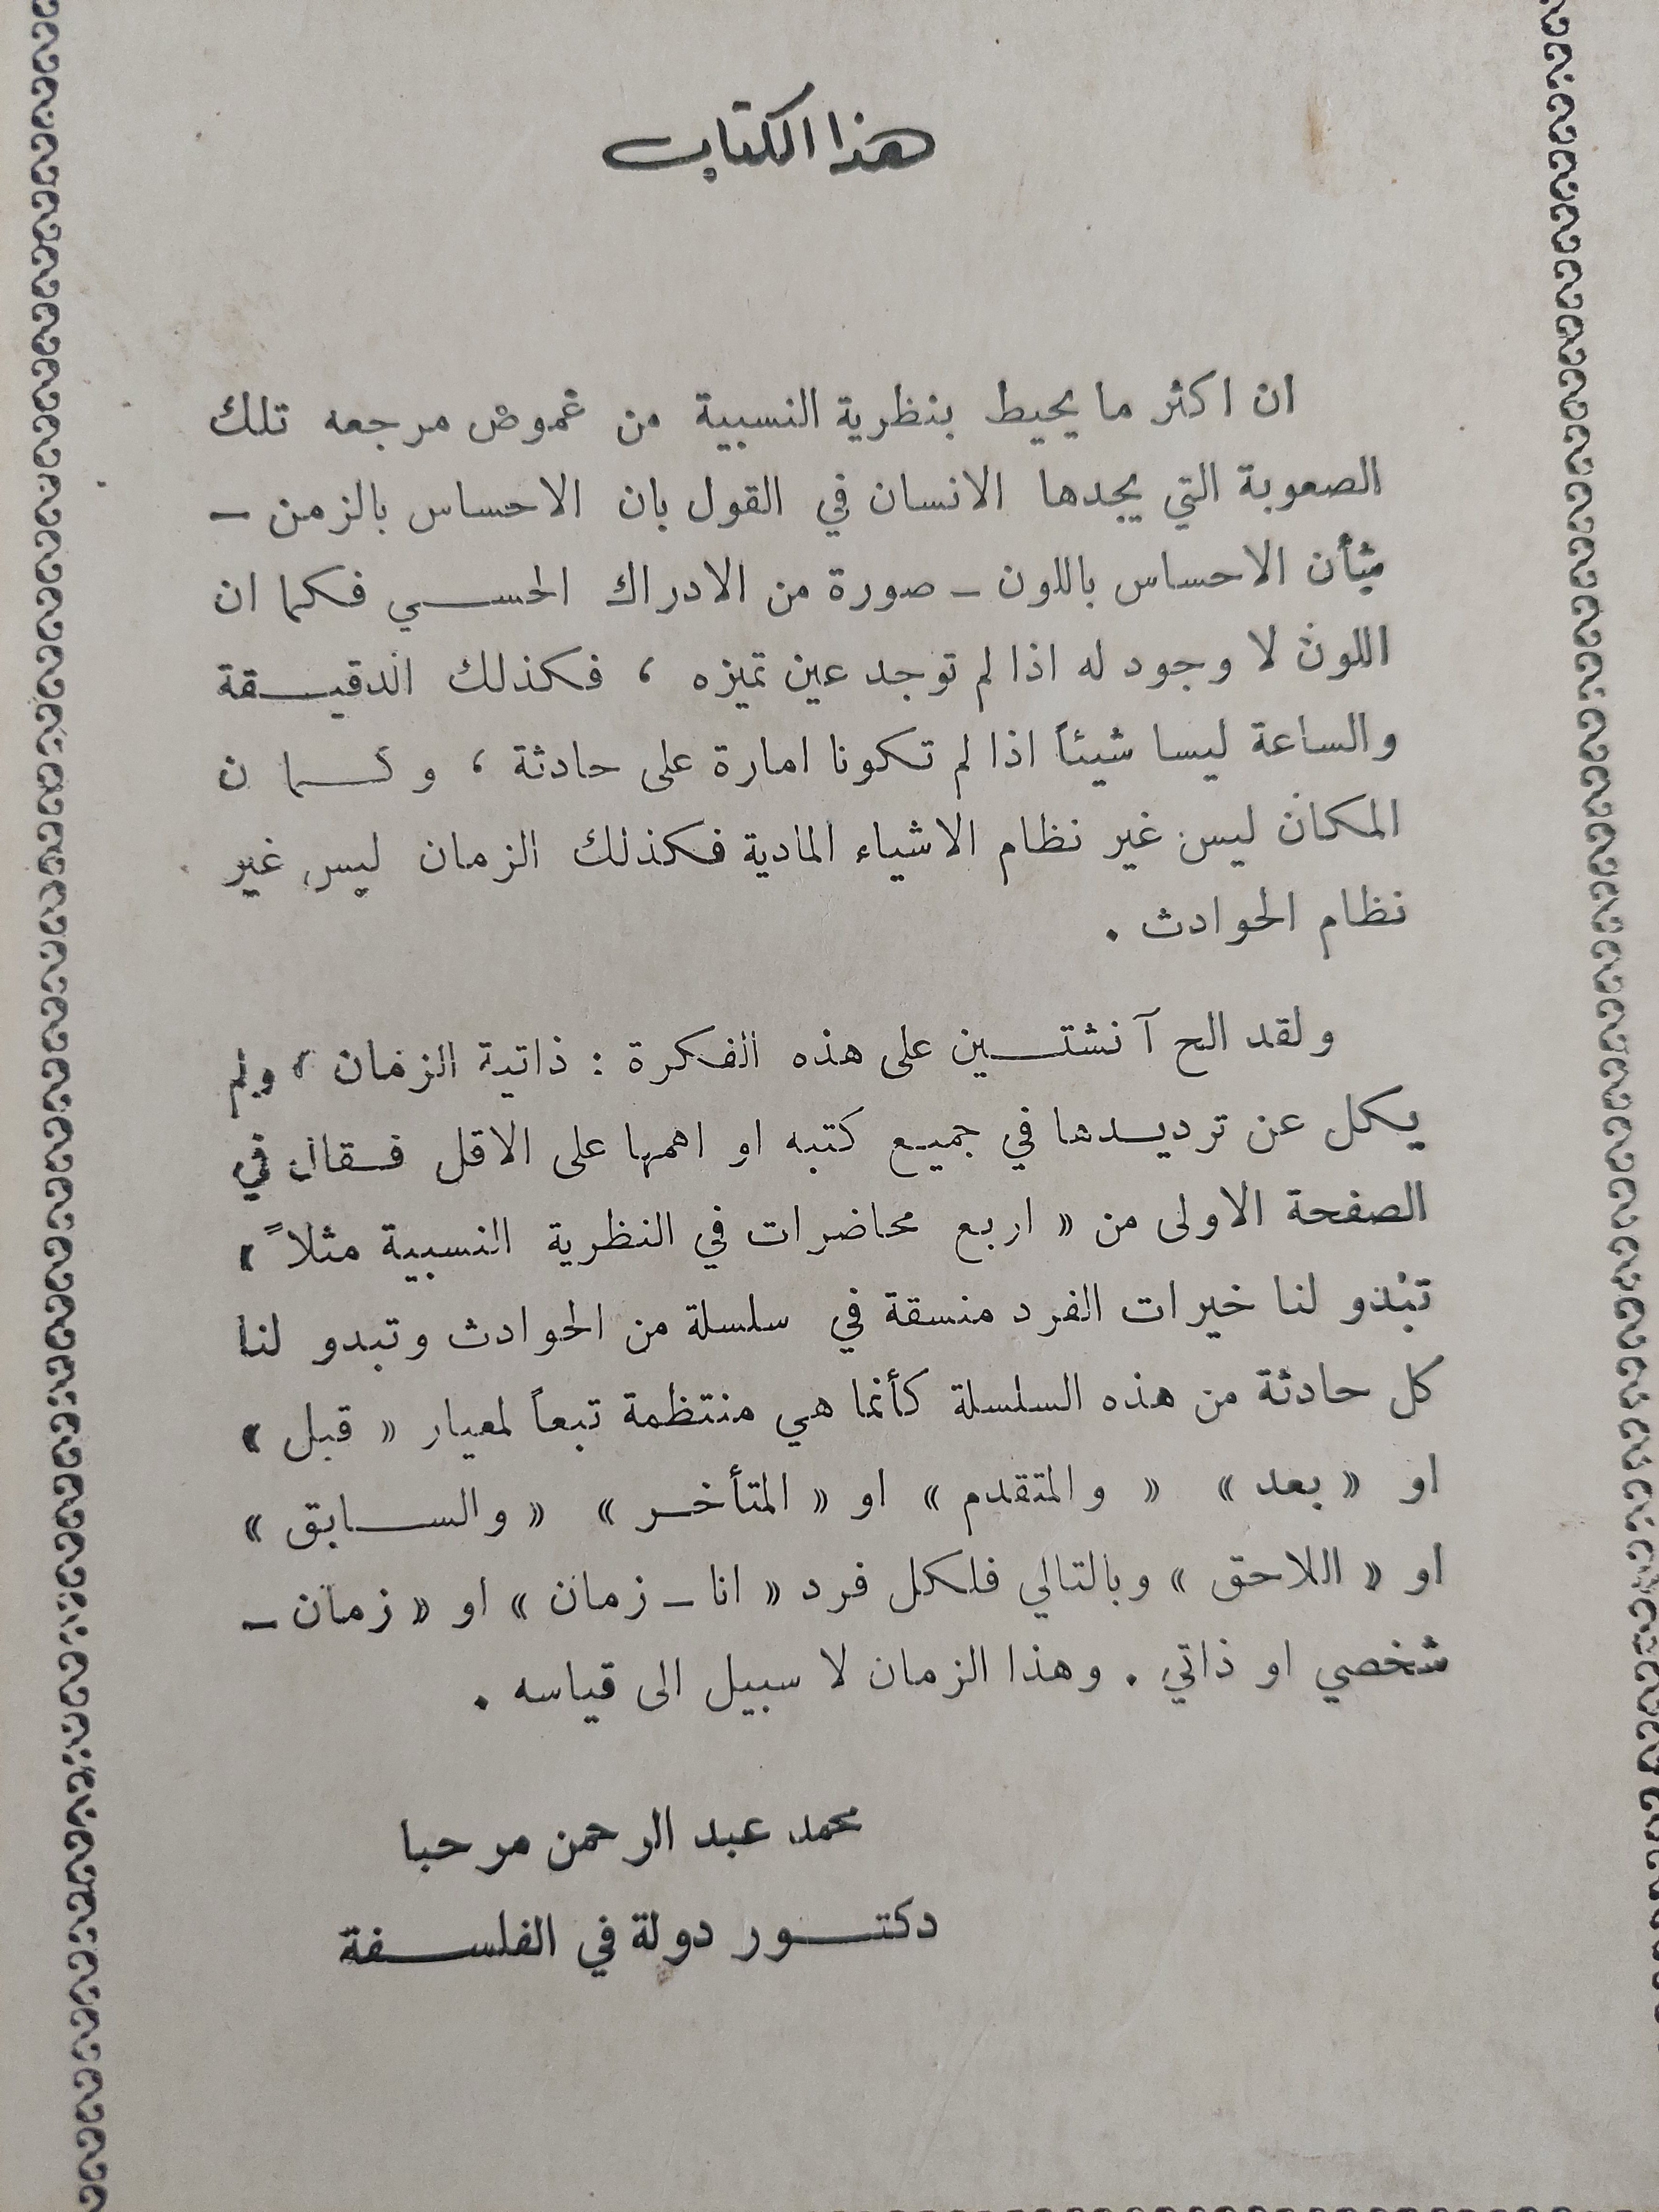 هذا الكتاب
ان اكثر ما يحيط بنظرية النسبية من غموض مرجعه تلك
الصعوبة التي يجدها الانسان في القول بان الاحساس بالزمن –
شأن الاحساس باللون – صورة من الادراك الحسي فكما ان
اللون لا وجود له اذا لم توجد عين تميزه ، فكذلك الدقيقة
والساعة ليسا شيئاً اذا لم تكونا امارة على حادثة ، وكما ن
المكان ليس غير نظام الاشياء المادية فكذلك الزمان ليس غير
نظام الحوادث .
ولقد الح آنشتين على هذه الفكرة : ذاتية الزمان ، ولم
يكل عن ترديدها في جميع كتبه او اهمها على الاقل فقال في
الصفحة الاولى من « اربع محاضرات في النظرية النسبية مثلاً »
تبدو لنا خيرات الفرد منسقة في سلسلة من الحوادث وتبدو لنا
كل حادثة من هذه السلسلة كأنما هي منتظمة تبعاً لمعيار « قبل »
او « بعد » « والمتقدم » او « المتأخر » « والسابق »
او « اللاحق » وبالتالي فلكل فرد « انا – زمان » او « زمان –
شخصي او ذاتي . وهذا الزمان لا سبيل الى قياسه .
محمد عبد الرحمن مرحبا
دكتور دولة في الفلسفة